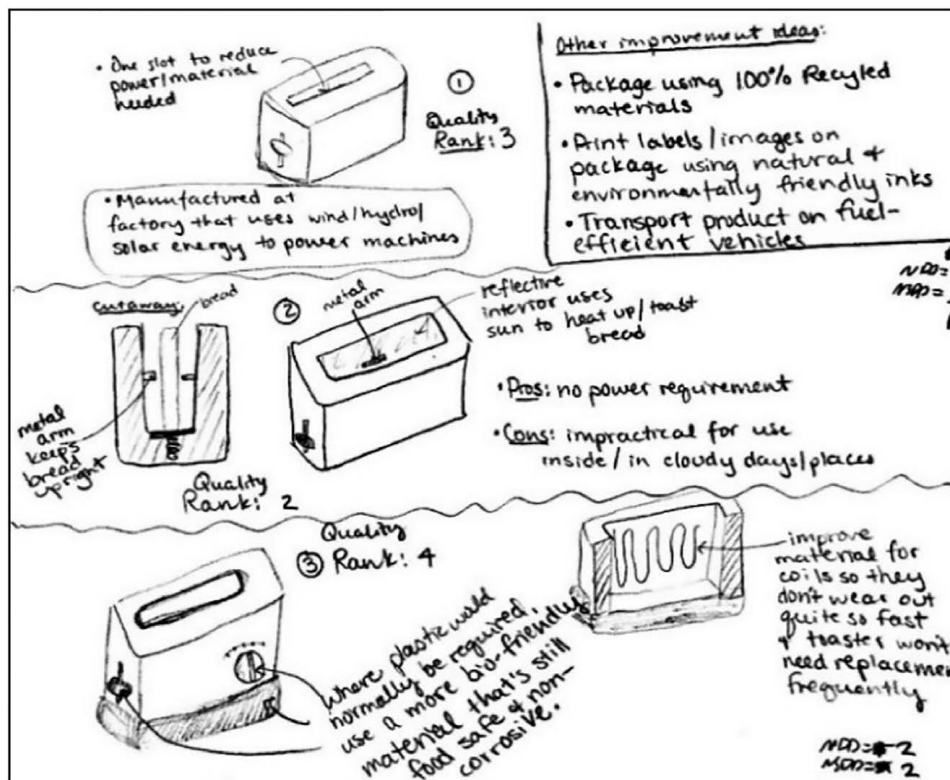 • One slot to reduce
power/material
needed
①
Quality
Rank: 3
• Manufactured at
factory that uses wind/hydro/
solar energy to power machines
Other improvement ideas:
• Package using 100% Recycled
materials
• Print labels/images on
package using natural &
environmentally friendly inks
• Transport product on fuel-
efficient vehicles
NDD=
MDD=
cutaway:
bread
②
metal
arm
reflective
interior uses
sun to heat up/toast
bread
metal
arm
keeps
bread
upright
Quality
Rank: 2
• Pros: no power requirement
• Cons: impractical for use
inside/in cloudy days/places
③
Quality
Rank: 4
Where plastic would
normally be required,
use a more bio-friendly
material that's still
food safe & non-
corrosive.
improve
material for
coils so they
don't wear out
quite so fast
& toaster won't
need replacement
frequently
NDD= 2
MDD= 2